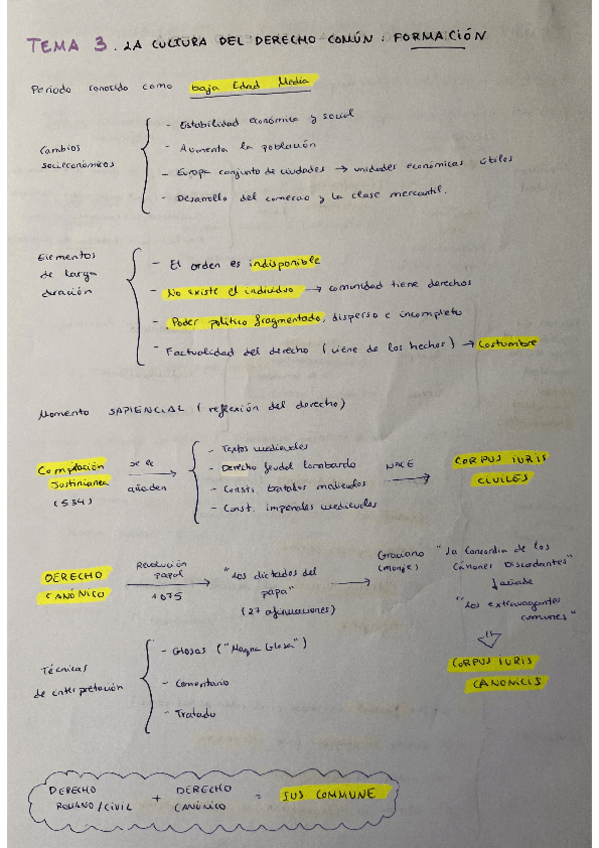 TEMA 3. LA CULTURA DEL DERECHO COMÚN: FORMACIÓN
Periodo conocido como baja Edad Media
Cambios socieconómicos
- Estabilidad económica y social
- Aumenta la población
- Europa conjunto de ciudades → unidades económicas útiles
- Desarrollo del comercio y la clase mercantil.
Elementos de larga duración
- El orden es indisponible
- No existe el individuo → comunidad tiene derechos
- Poder político fragmentado, disperso e incompleto
- Factualidad del derecho (viene de los hechos) → Costumbre
Momento SAPIENCIAL (reflexión del derecho)
Compilación Justinianea (534)
se le añaden →
- Textos medievales
- Derecho feudal lombardo
- Consti. tratados medievales
- Const. imperiales medievales
NACE →
CORPUS IURIS CIVILES
DERECHO CANÓNICO
Revolución papal 1075 →
"Los dictados del papa" (27 afirmaciones) →
Graciano (monje) "La Concordia de los Cánones Discordantes"
añade
"Los extravagantes comunes"
CORPUS IURIS CANONICIS
Técnicas de interpretación
- Glosas ("Magna Glosa")
- Comentario
- Tratado
DERECHO ROMANO/CIVIL + DERECHO CANÓNICO = IUS COMMUNE